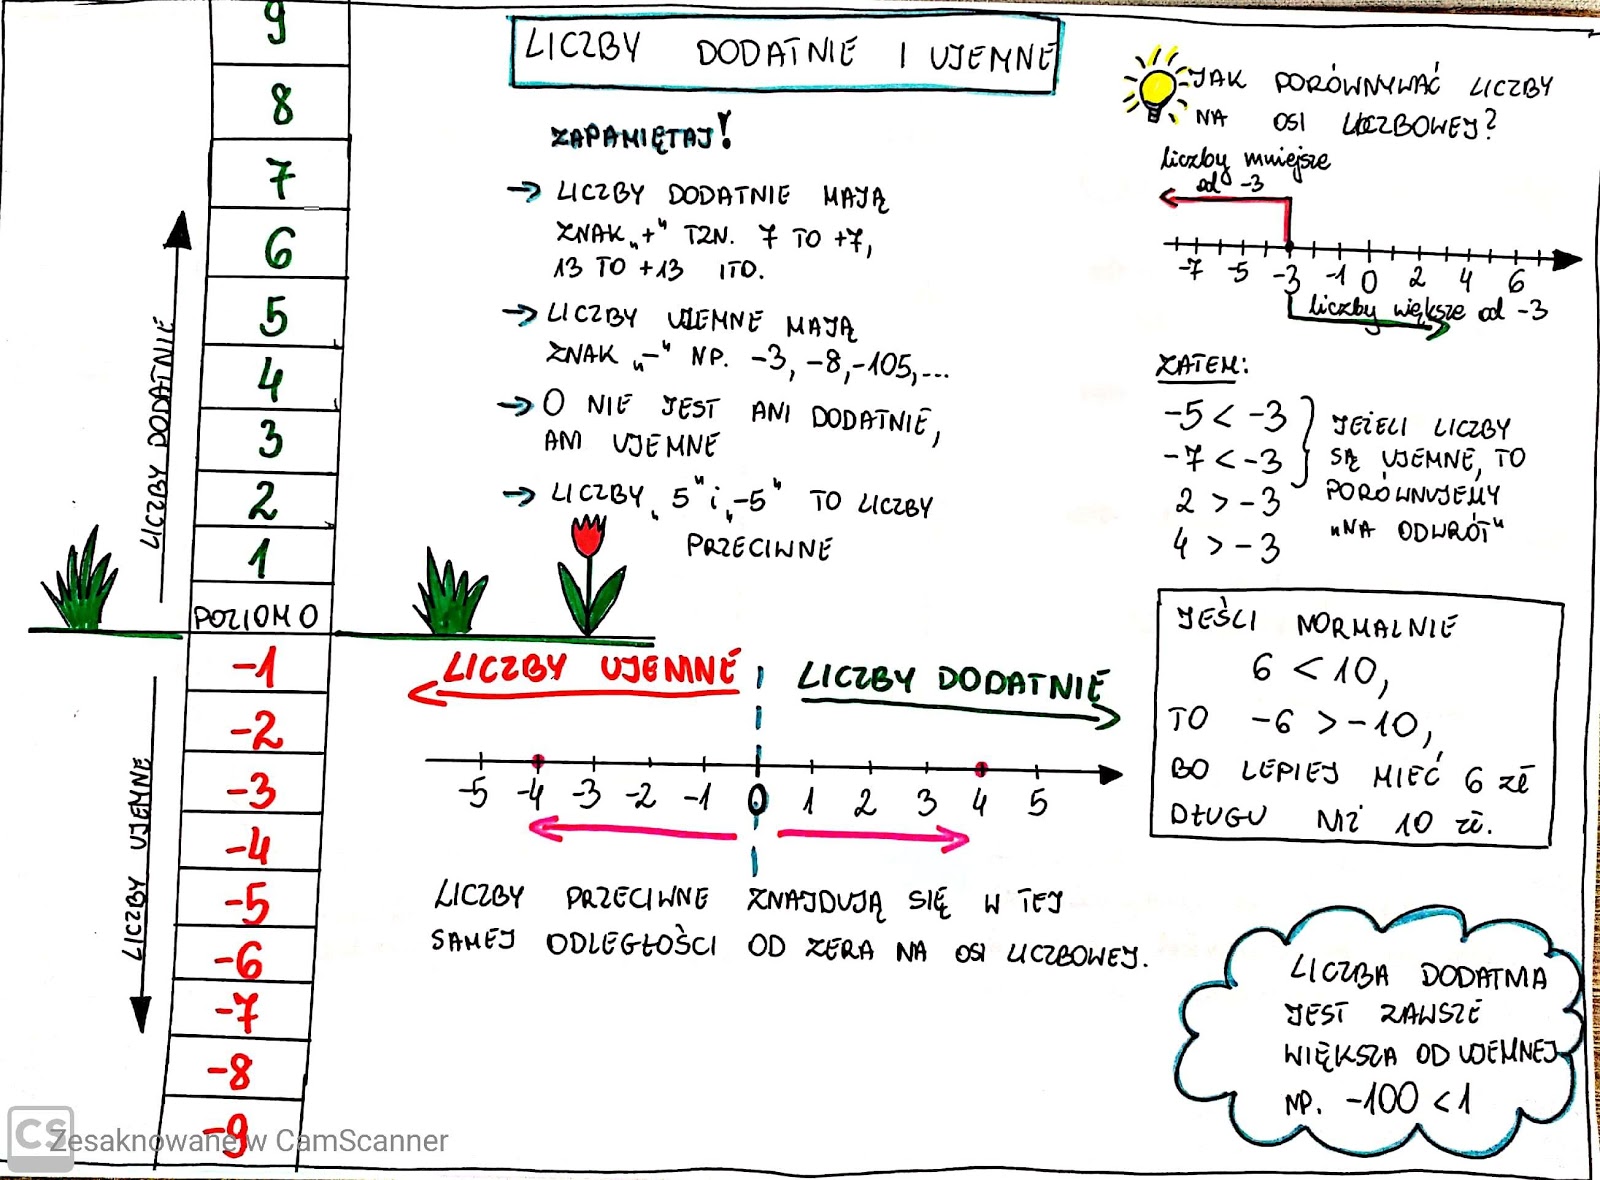 LICZBY DODATNIE I UJEMNE
9
8
7
6
5
4
3
2
1
POZIOM 0
-1
-2
-3
-4
-5
-6
-7
-8
-9
LICZBY DODATNIE
LICZBY UJEMNE
ZAPAMIĘTAJ!
→ LICZBY DODATNIE MAJĄ
ZNAK „+" TZN. 7 TO +7,
13 TO +13 ITD.
→ LICZBY UJEMNE MAJĄ
ZNAK „-" NP. -3, -8, -105,...
→ 0 NIE JEST ANI DODATNIE,
ANI UJEMNE
→ LICZBY „5" i „-5" TO LICZBY
PRZECIWNE
LICZBY UJEMNE
LICZBY DODATNIE
-5 -4 -3 -2 -1 0 1 2 3 4 5
LICZBY PRZECIWNE ZNAJDUJĄ SIĘ W TEJ
SAMEJ ODLEGŁOŚCI OD ZERA NA OSI LICZBOWEJ.
JAK PORÓWNYWAĆ LICZBY
NA OSI LICZBOWEJ?
liczby mniejsze
od -3
-7 -5 -3 -1 0 2 4 6
liczby większe od -3
ZATEM:
-5 < -3
-7 < -3
2 > -3
4 > -3
JEŻELI LICZBY
SĄ UJEMNE, TO
PORÓWNUJEMY
„NA ODWRÓT"
JEŚLI NORMALNIE
6 < 10,
TO -6 > -10,
BO LEPIEJ MIEĆ 6 zł
DŁUGU NIŻ 10 zł.
LICZBA DODATNIA
JEST ZAWSZE
WIĘKSZA OD UJEMNEJ
NP. -100 < 1
CS
Zesaknowane w CamScanner